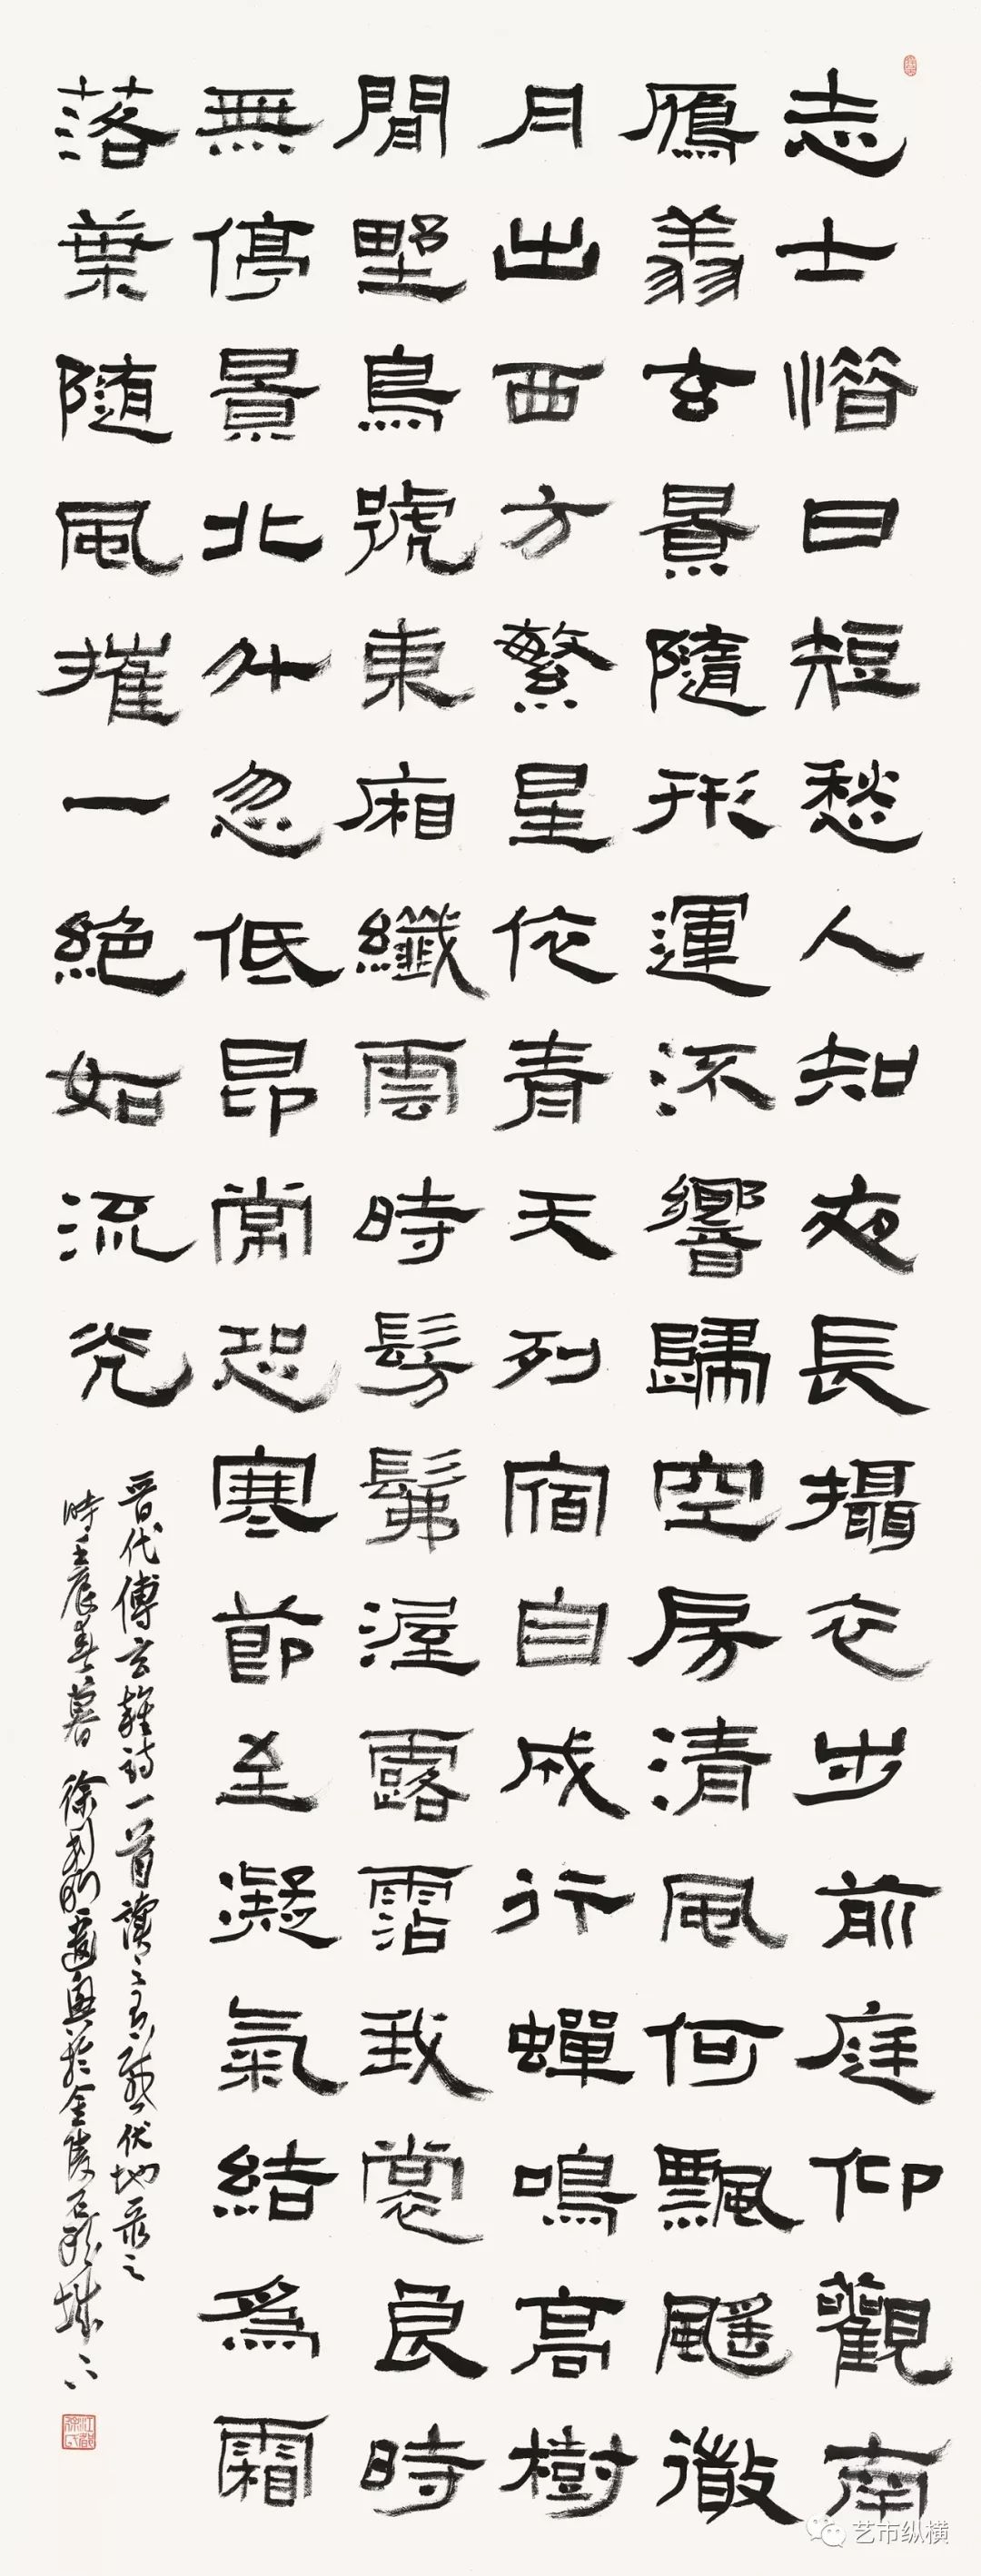 志士惜日短愁人知夜長攝衣步前庭仰觀南
鴈翔玄景隨形運流響歸空房清風何飄颻微
月出西方繁星依青天列宿自成行蟬鳴高樹
間野鳥號東廂纖雲時髣髴渥露霑我裳良時
無停景北斗忽低昂常恐寒節至凝氣結為霜
落葉隨風摧一絕如流光
晋代傅玄雜詩一首讀之伏地录之
時壬辰春暮 徐利明適興於金陵石頭城下
艺市纵横